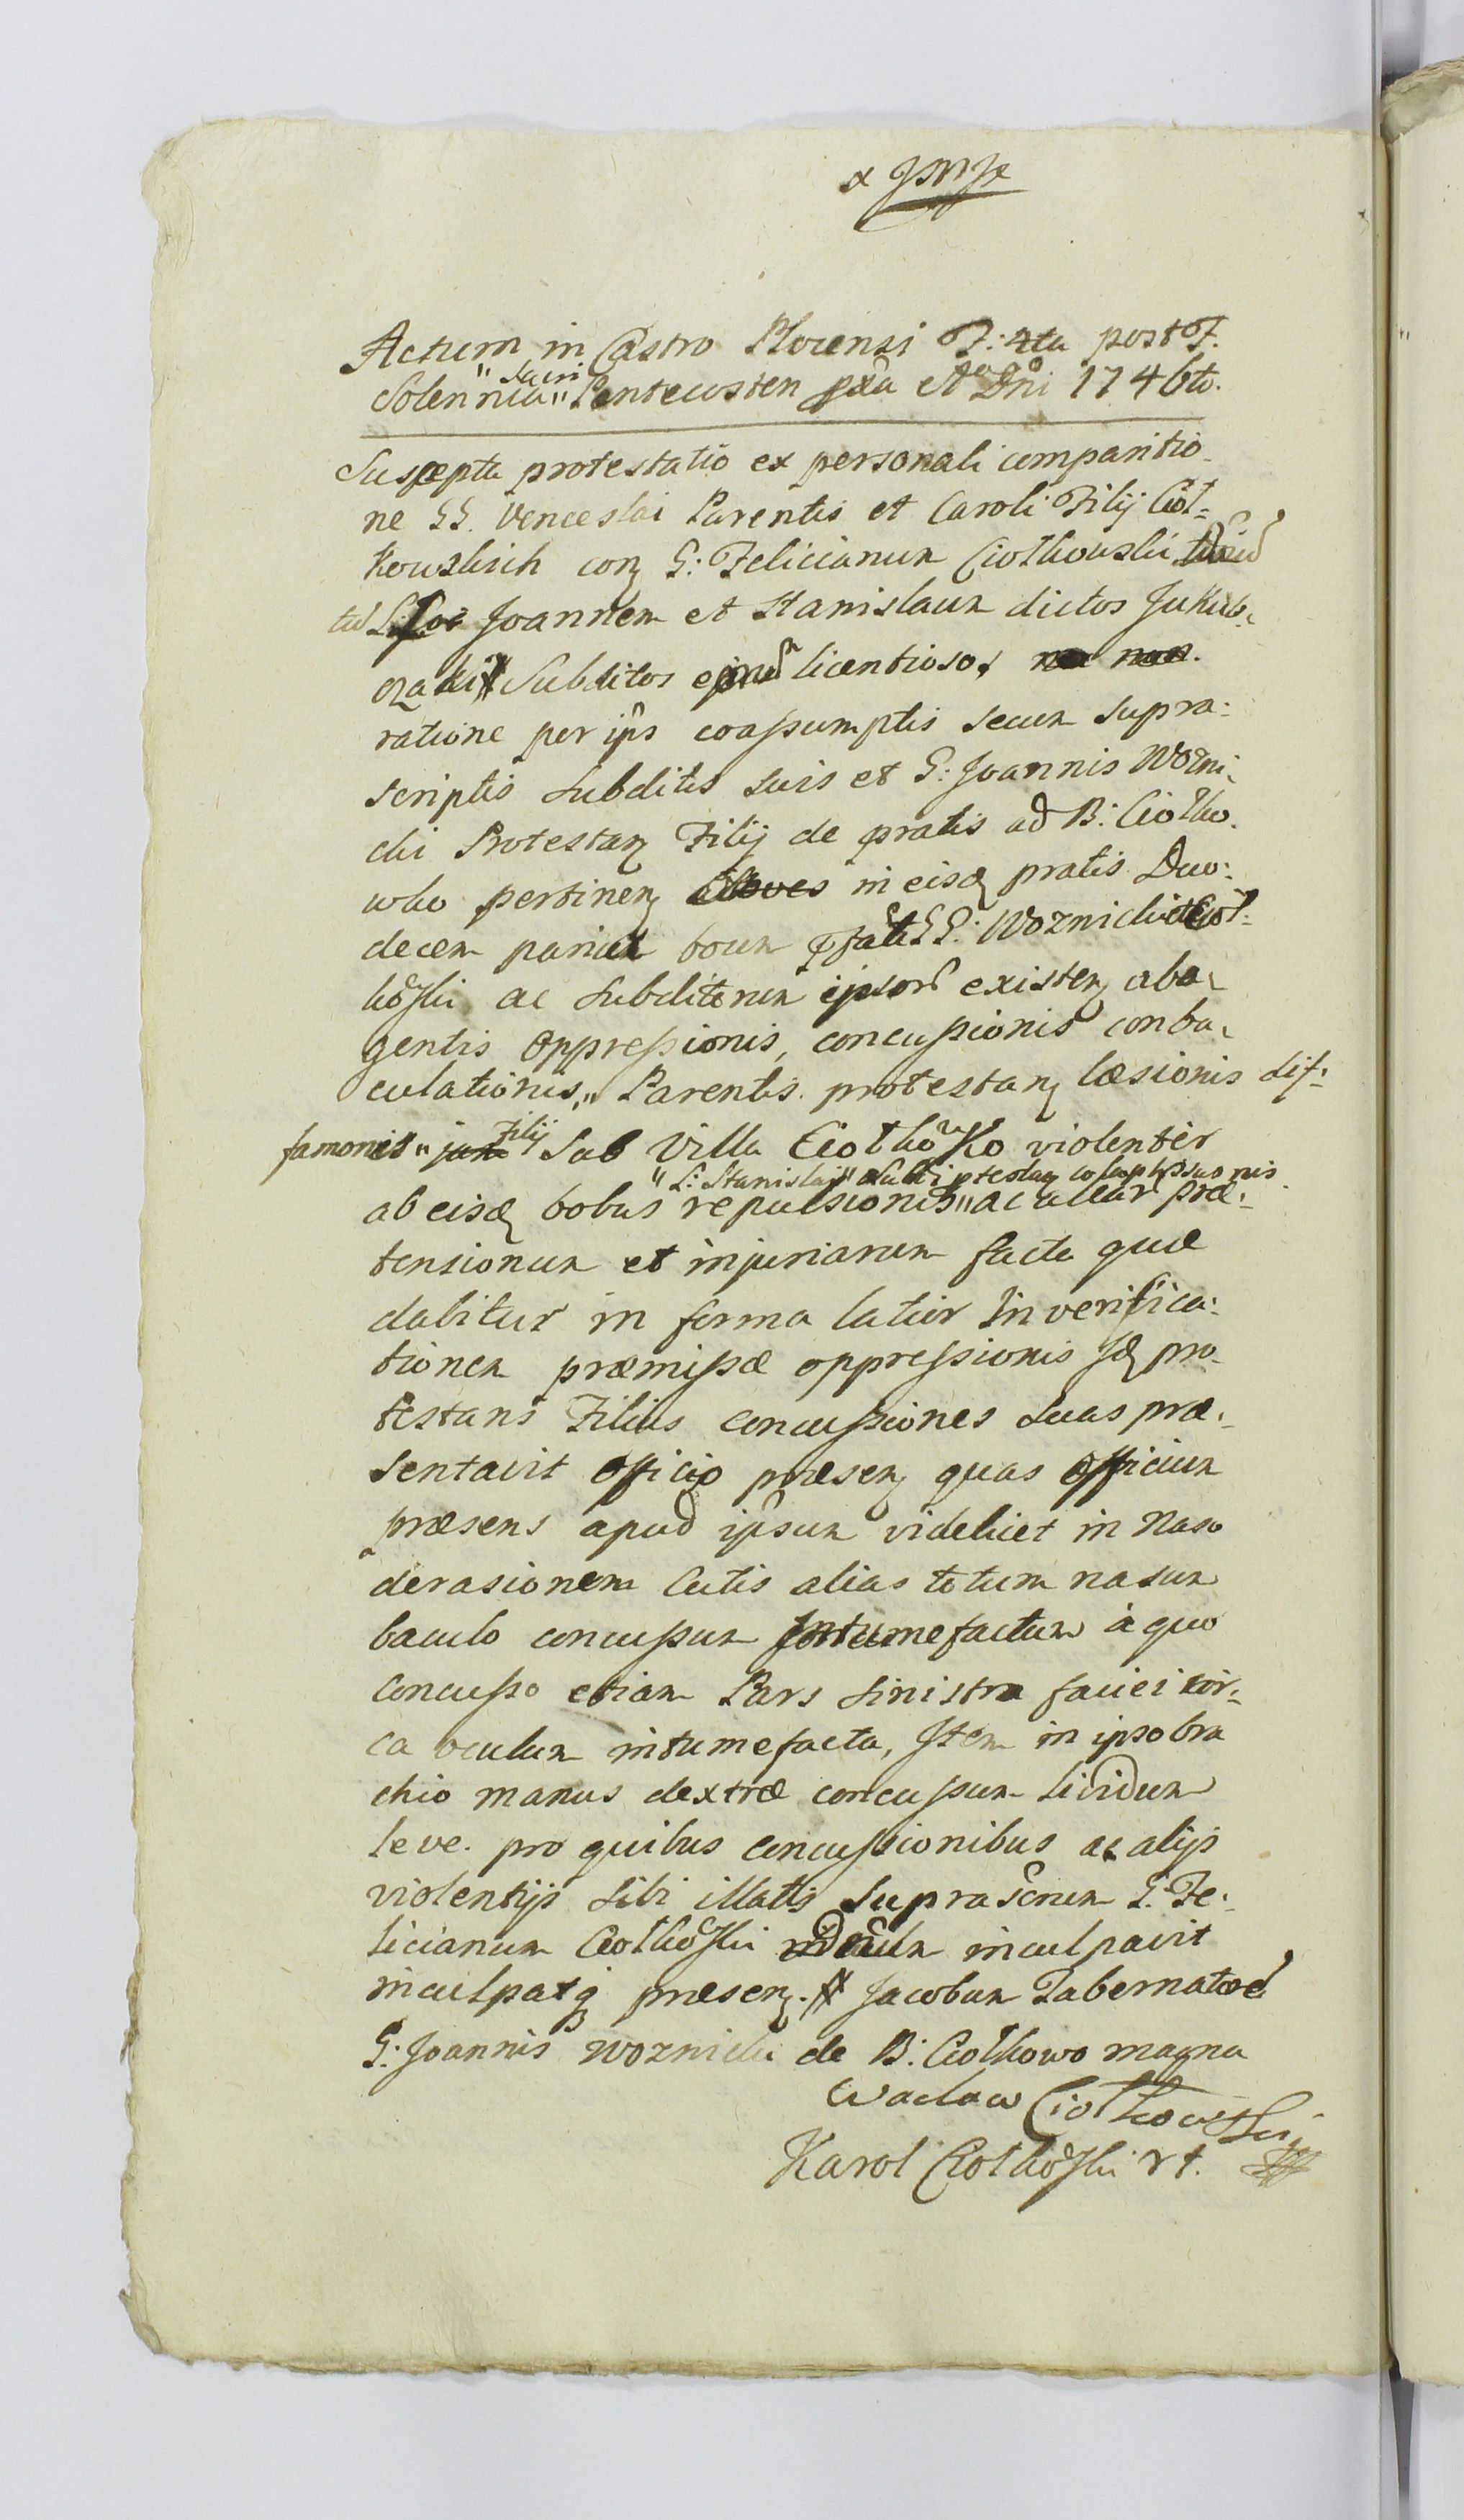 Actum in Castro Plocensi F: 4ta post F.
Solennia " Sacri " Pentecosten pxa Ao Dni 1746to.
Suscepta protestatio ex personali comparitio-
ne GG. Venceslai Parentis et Caroli Filij Ciół-
kowskich con G: Felicianum Ciołkowski
Joannem et Stanislaum dictos Jakub-
Subditos licentiosos
ratione per ips coassumptis secum supra-
scriptis Subditis suis et G: Joannis Wozni-
cki Protestan Filij de pratis ad B: Ciołko-
wko pertinen in eisd pratis Duo-
decem boum GG: Woznicki et Cioł-
koski ac Subditorum ipsor existen aba-
gentis oppressionis, concussionis conba-
culationis, " Parentis protestan læsionis dif-
famonis " Filij Sub Villa Ciołkowko violenter
" G: Stanislai " Subdi ptestan
ab eisd bobus repulsionis " ac aliar præ-
tensionum et injuriarum facta quæ
dabitur in forma latior In verifica-
tionem præmissæ oppressionis Id pro-
testans Filius concussiones suas præ-
sentavit officio præsen quas officium
præsens apud ipsum videlicet in Naso
derasionem Cutis alias totum nasum
baculo concussum Intumefactum à quo
concusso etiam Pars sinistra faciei cir-
ca oculum intumefacta, Item in ipso bra
chio manus dextræ concussum lividum
leve. pro quibus concussionibus ac alijs
violentijs sibi illatis suprascrum G. Fe-
licianum Ciołkoski inculpavit
inculpatq præsen. Jacobum Tabernatore
G: Joannis Woznicki de B: Ciołkowo magna
Wacław Ciołkowski
Karol Ciołkoski